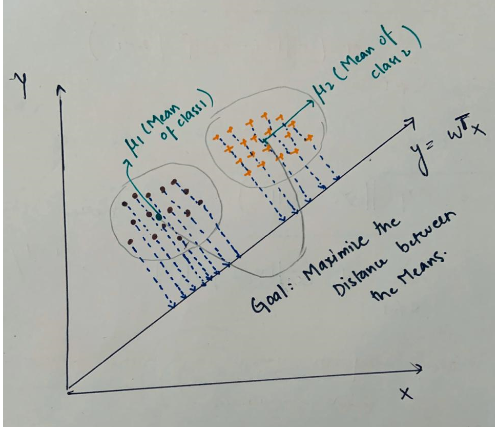 Y
μ1 (Mean
of class1)
μ2 (Mean of
class 2)
y = wᵀx
Goal: Maximize the
Distance between
the Means.
X